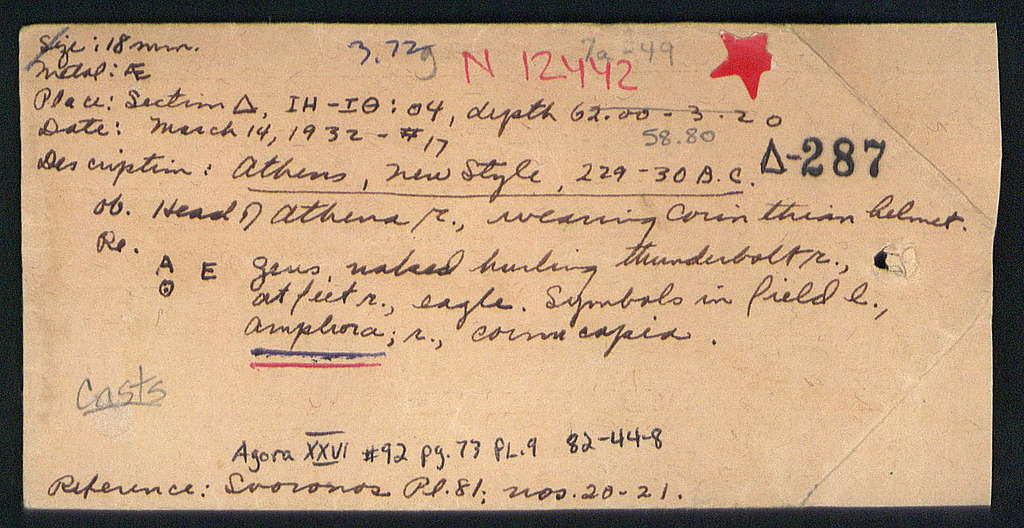 Size: 18 mm. 3.72g N 12442 7a-49
Metal: Æ
Place: Section Δ, IH-IΘ: 04, depth 62.00-3.20
Date: March 14, 1932 - #17 58.80
Description: Athens, new Style, 229-30 B.C. Δ-287
Ob. Head of Athena r., wearing Corinthian helmet.
Re.
A E Zeus, naked hurling thunderbolt r.,
Θ at feet r., eagle. Symbols in field l.,
amphora; r., cornucopia.
Casts
Agora XXVI #92 pg. 73 PL.9 82-44-8
Reference: Svoronos Pl. 81; nos. 20-21.